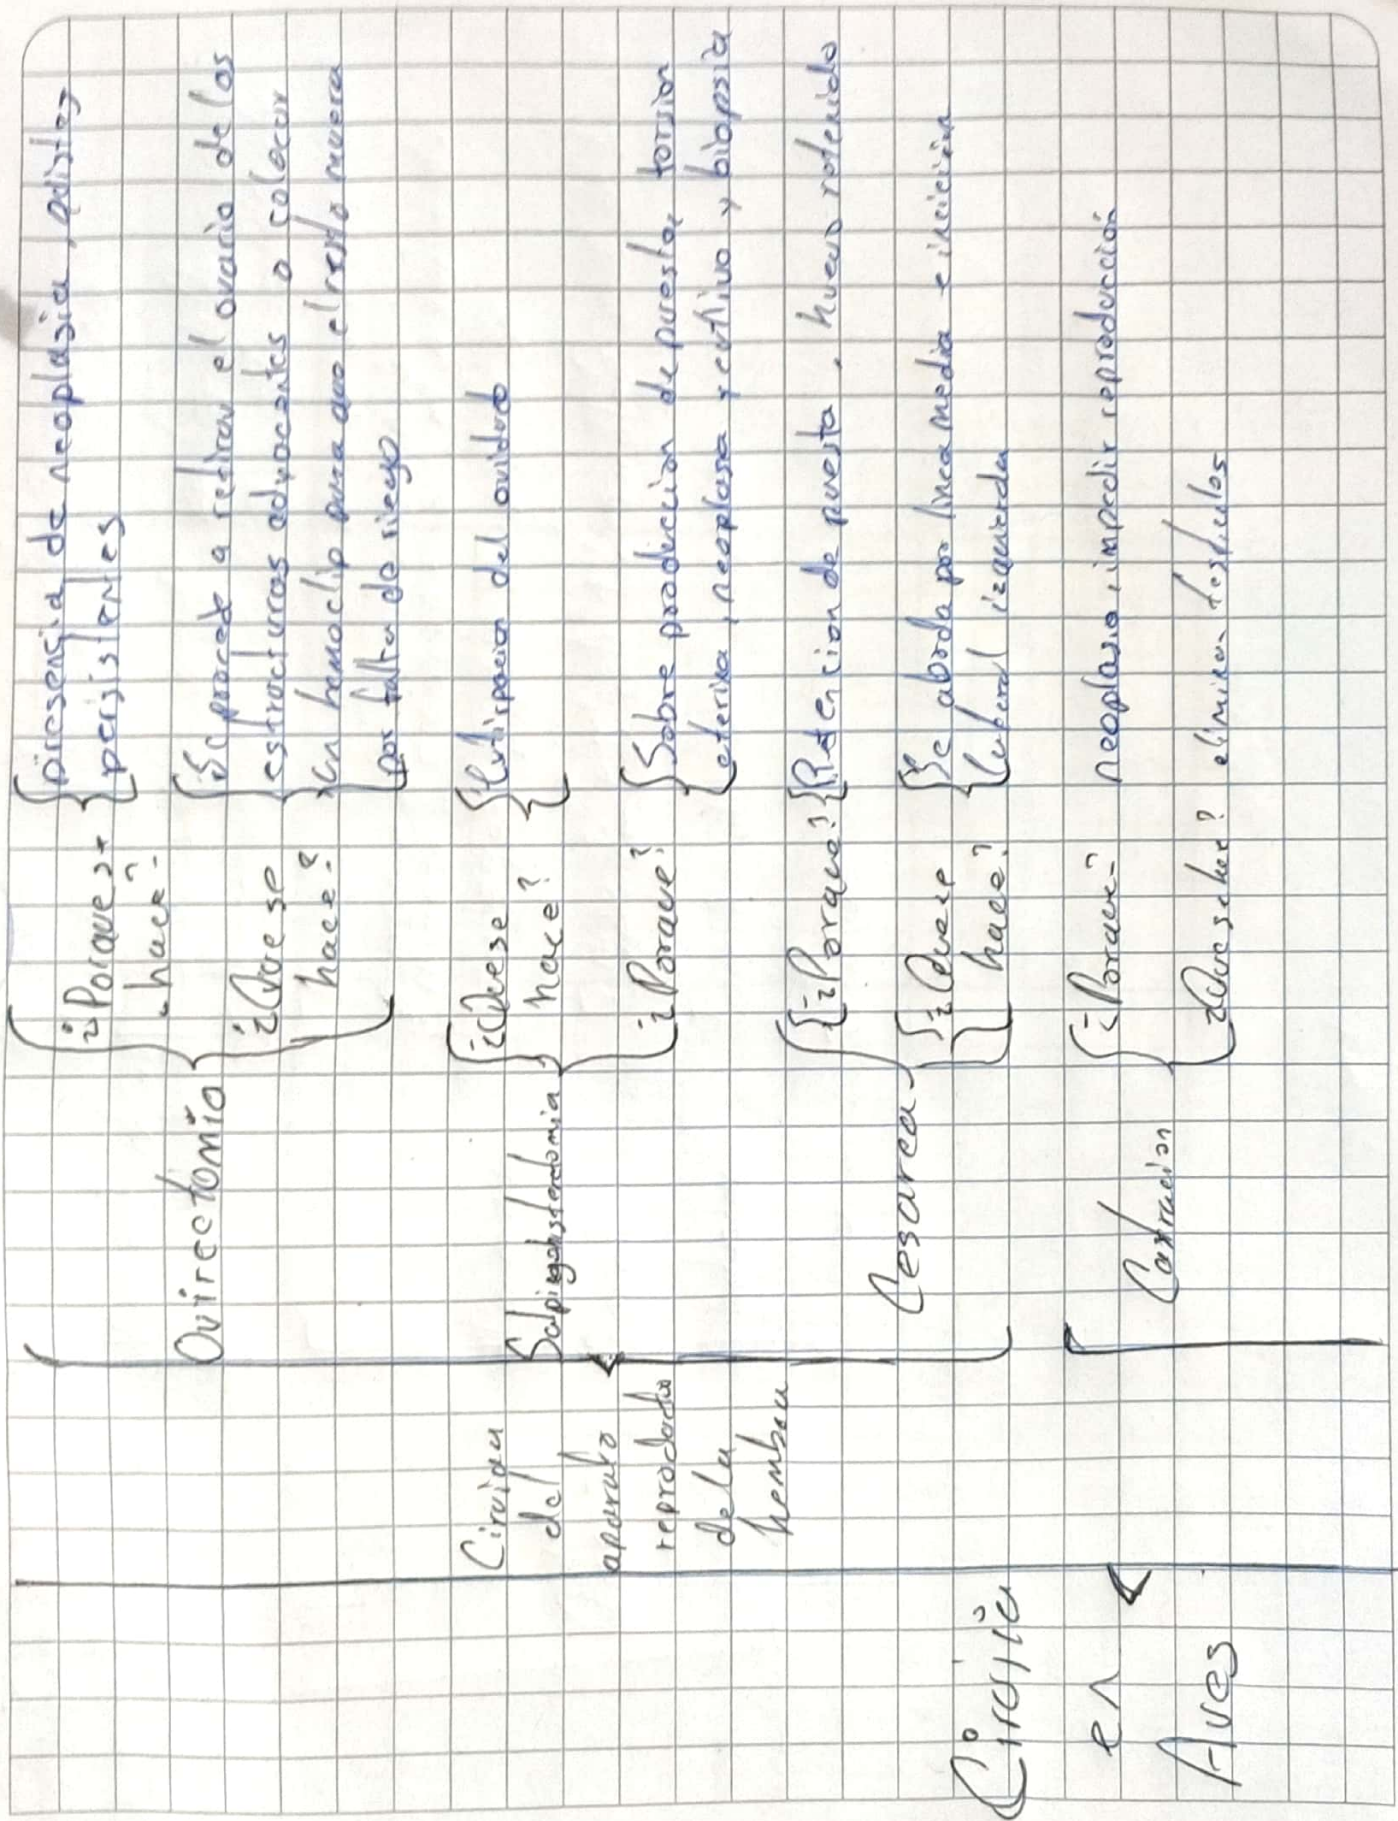 Cirujia
en
Aves
Cirujia
del
aparato
reproducto
de la
hembra
Ovirectomio
¿Porque se
hace?
presencia de neoplasia, quistes
persistentes
¿Que se
hace?
Se procede a retirar el ovario de los
estructuras adyacentes o colocar
un hemoclip para que el resto muera
por falta de riego
Salpingohisterectomia
¿Que se
hace?
Extirpacion del oviducto
¿Porque?
Sobre producion de puesta, torsion
eterina, neoplasa y cultivo y biopsia
Cesarea
¿Porque?
Retencion de puesta, huevo retenido
¿Que se
hace?
Se aborda por linea media e incicion
lateral izquierda
Castracion
¿Porque?
neoplasia, impedir reproducción
¿Que se hace?
eliminan testiculos